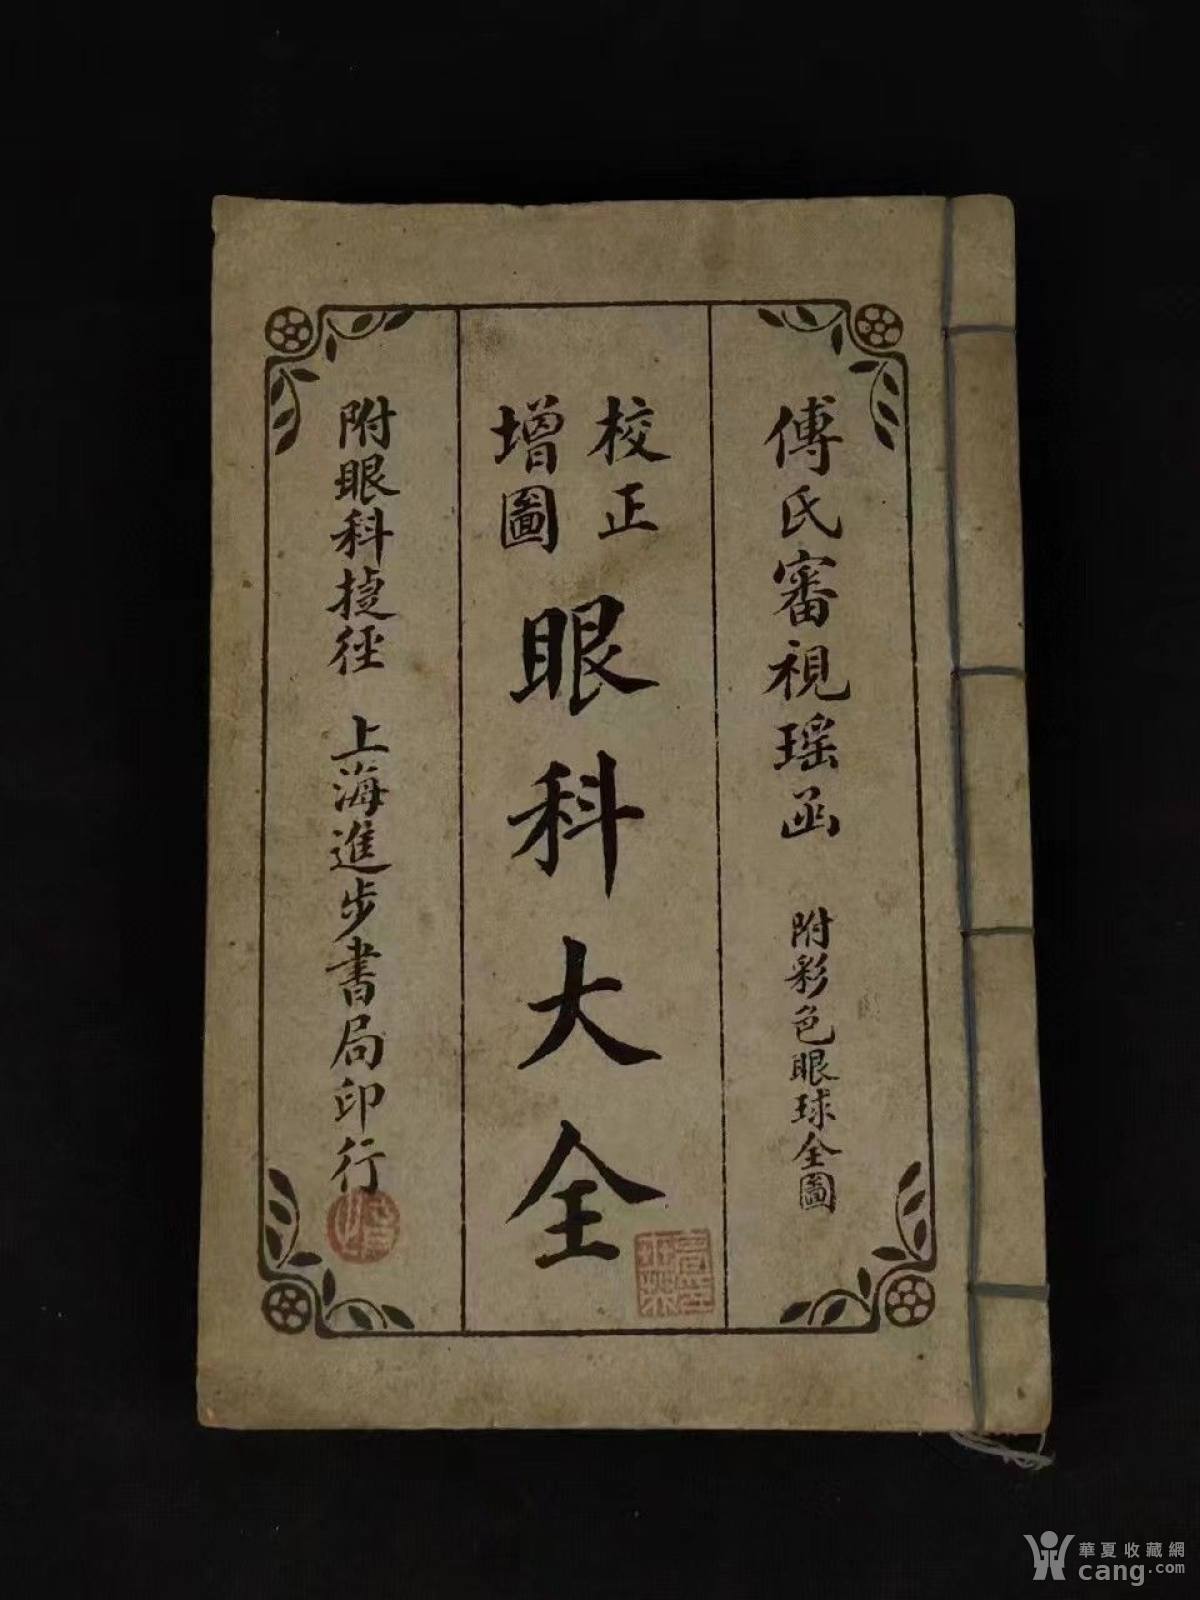 傅氏審視瑶函 附彩色眼球全圖
校正
增圖
眼科大全
附眼科捷徑 上海進步書局印行
華夏收藏網
cang.com